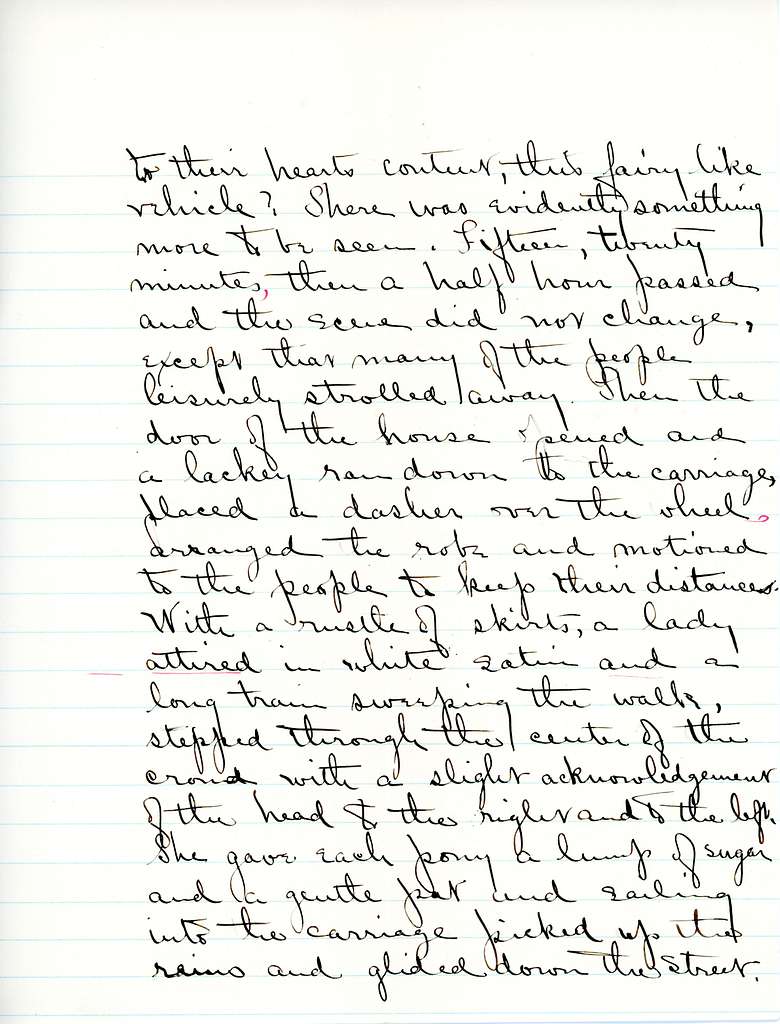 to their hearts content, this fairy like
vehicle? There was evidently something
more to be seen. Fifteen, twenty
minutes, then a half hour passed
and the scene did not change,
except that many of the people
leisurely strolled away. Then the
door of the house opened and
a lackey ran down to the carriage,
placed a dasher over the wheel,
arranged the robe and motioned
to the people to keep their distances.
With a rustle of skirts, a lady
attired in white satin and a
long train sweeping the walk,
stepped through the center of the
crowd with a slight acknowledgement
of the head to the right and to the left.
She gave each pony a lump of sugar
and a gentle pat and sailing
into the carriage picked up the
reins and glided down the street.